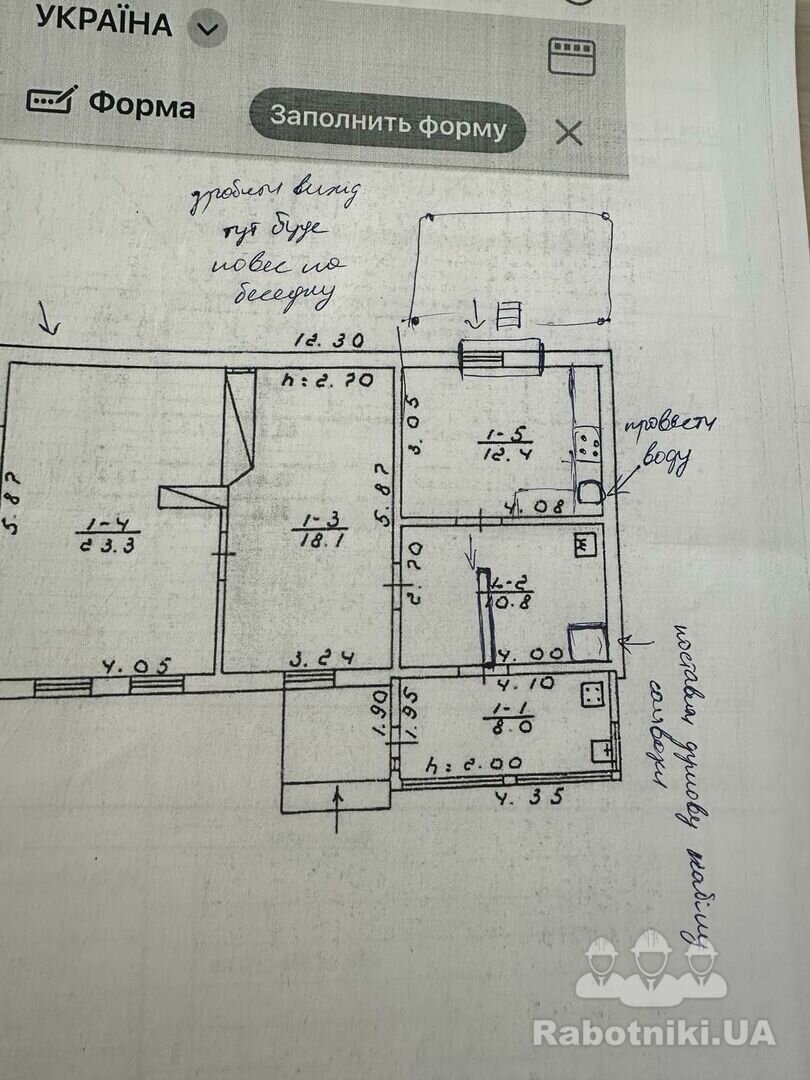 УКРАЇНА
Форма
Заполнить форму
вихід
тут буде
навес на
беседку
12.30
h:2.70
3.05
1-5
12.4
провести
воду
5.87
5.87
4.08
1-4
23.3
1-3
18.1
2.70
1-2
10.8
4.05
3.24
4.00
4.10
1.90
1.95
1-1
8.0
h:2.00
4.35
душову кабіну
Rabotniki.UA